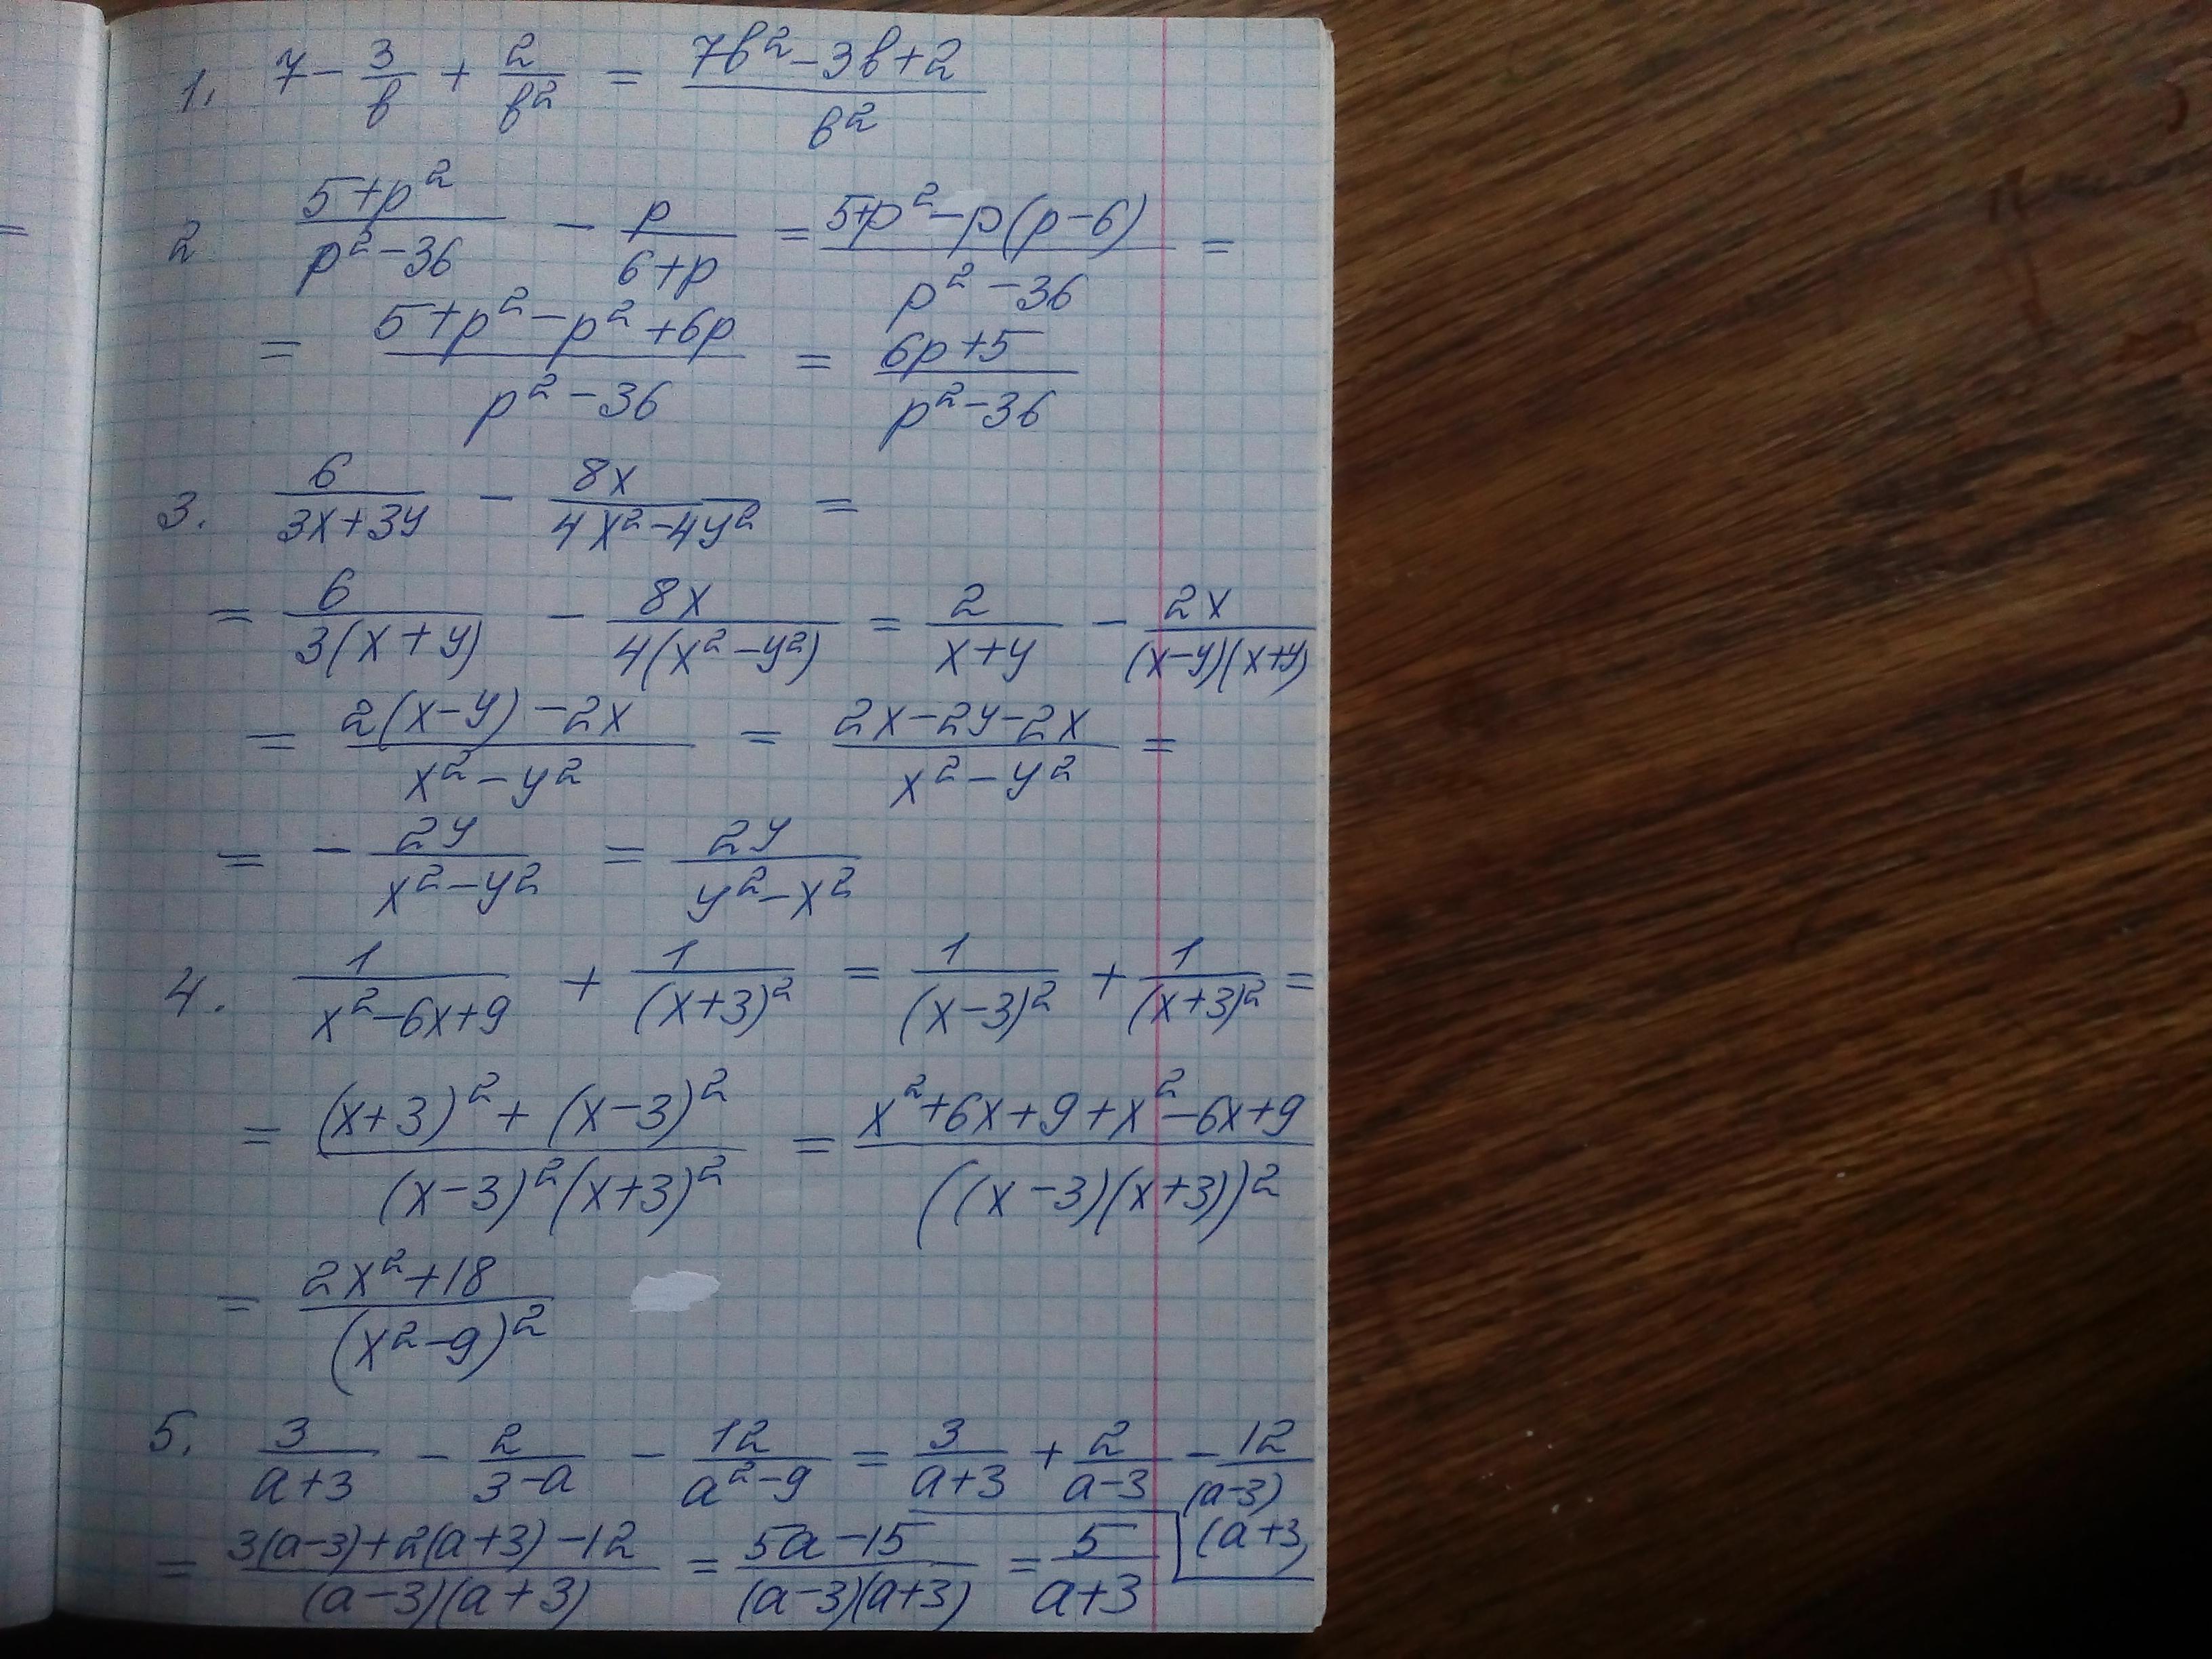 1. 7 - 3/b + 2/b² = (7b² - 3b + 2)/b²
2 (5+p²)/(p²-36) - p/(6+p) = (5+p²-p(p-6))/(p²-36) =
= (5+p²-p²+6p)/(p²-36) = (6p+5)/(p²-36)
3. 6/(3x+3y) - 8x/(4x²-4y²) =
= 6/(3(x+y)) - 8x/(4(x²-y²)) = 2/(x+y) - 2x/((x-y)(x+y))
= (2(x-y)-2x)/(x²-y²) = (2x-2y-2x)/(x²-y²) =
= - 2y/(x²-y²) = 2y/(y²-x²)
4. 1/(x²-6x+9) + 1/(x+3)² = 1/(x-3)² + 1/(x+3)² =
= ((x+3)² + (x-3)²)/((x-3)²(x+3)²) = (x²+6x+9+x²-6x+9)/((x-3)(x+3))²
= (2x²+18)/(x²-9)²
5. 3/(a+3) - 2/(3-a) - 12/(a²-9) = 3/(a+3) + 2/(a-3) - 12/((a-3)(a+3)
= (3(a-3)+2(a+3)-12)/((a-3)(a+3)) = (5a-15)/((a-3)(a+3)) = 5/(a+3)